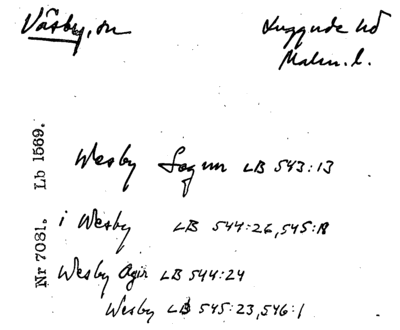 Väsby, sn
Luggude hd
Malm. l.
Nr 7031. Lb 1569.
Wesby Sognn LB 543:13
i Wesby LB 544:26, 545:18
Wesby Agir LB 544:24
Wesby LB 545:23, 546:1